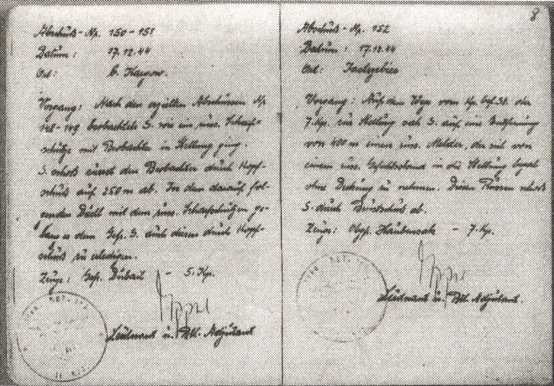 Abschuß-Np. 150-151
Datum: 17.12.44
Ort:
Vorgang: Nach den erzielten Abschüssen Np.
beobachtete S. wie ein russ. Scharf-
schütze mit Beobachter in Stellung ging.
S. schoß zuerst den Beobachter durch Kopf-
schuß auf 250 m ab. In dem darauf fol-
genden Duell mit dem russ. Scharfschützen ge-
lang es dem Gef. S. auch diesen durch Kopf-
schuß zu erledigen.
Zeuge: Gef. - 5. Kp.
Leutnant u. Btl. Adjutant
8
Abschuß-Np. 152
Datum: 17.12.44
Ort:
Vorgang: Auf dem Weg vom Kp. Gef. St. der
7. Kp. zur Stellung sah S. auf eine Entfernung
von 400 m einen russ. Melder, der sich von
einem russ. Gefechtsstand in die Stellung begab
ohne Deckung zu nehmen. Diesen Russen schoß
S. durch Brustschuß ab.
Zeuge: - 7. Kp.
Leutnant u. Btl. Adjutant